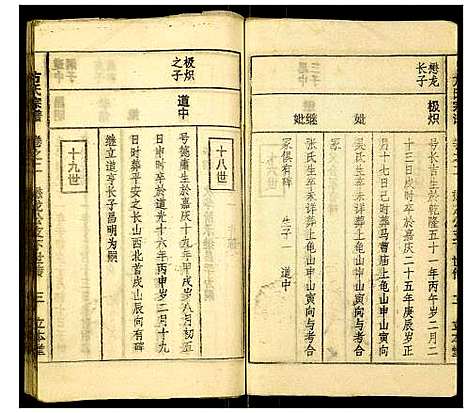 懋龙
长子
极炽
号长吉生於乾隆五十一年丙午岁二月二
十三日戌时卒於嘉庆二十五年庚辰岁正
月十七日己时葬马曹庙上龟山申山寅向
妣
吴氏生卒未详葬上龟山申山寅向与考合
冢
继妣
张氏生卒未详葬上龟山申山寅向与考合
冢俱有碑
生子一
道中
十八世
极炽
之子
道中
号德蒲生於嘉庆十九年甲戌岁八月初五
日时卒於道光十六年丙申岁二月十九
日时葬平安之长山西北首戌山辰向有碑
继立道亨长子昌明为嗣
十九世
三
立本堂